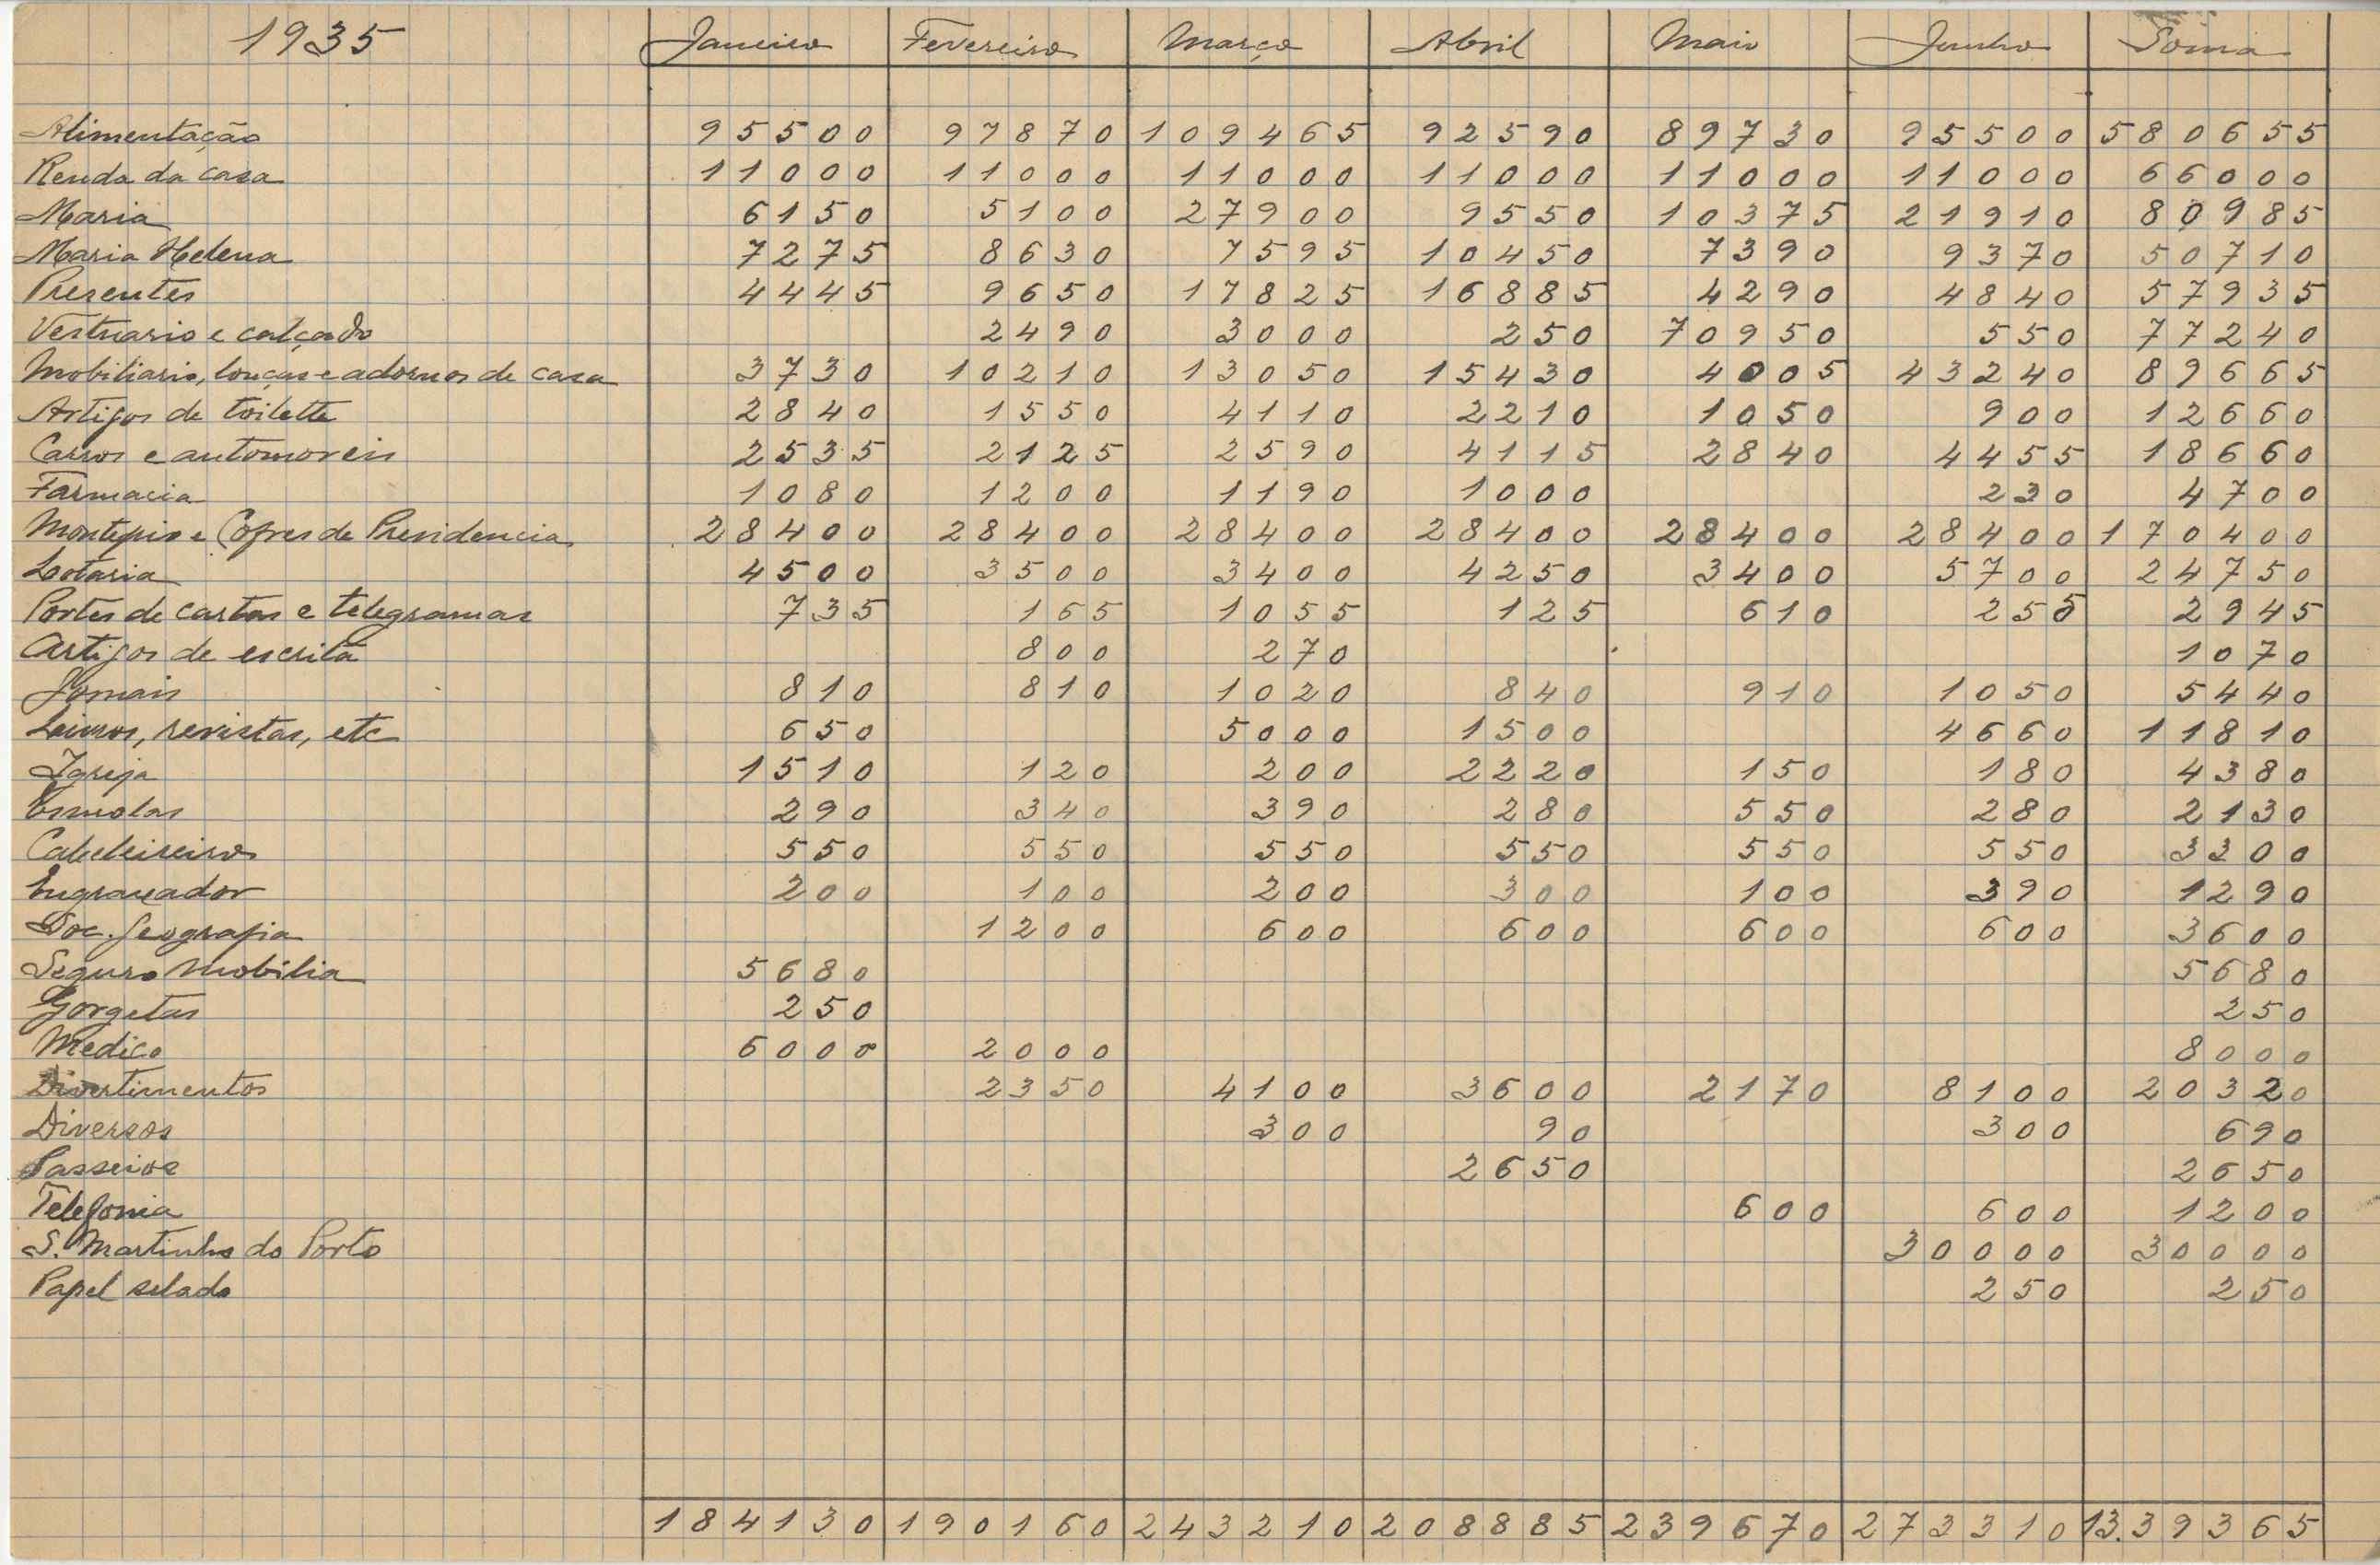 1935 Janeiro Fevereiro Março Abril Maio Junho Soma
Alimentação 95500 97870 109465 92590 89730 95500 580655
Renda da casa 11000 11000 11000 11000 11000 11000 66000
Maria 6150 5100 27900 9550 10375 21910 80985
Maria Helena 7275 8630 7595 10450 7390 9370 50710
Presentes 4445 9650 17825 16885 4290 4840 57935
Vestuario e calçado 2490 3000 250 70950 550 77240
Mobiliario, louças e adornos de casa 3730 10210 13050 15430 4005 43240 89665
Artigos de toilette 2840 1550 4110 2210 1050 900 12660
Carros e automoveis 2535 2125 2590 4115 2840 4455 18660
Farmacia 1080 1200 1190 1000 230 4700
Montepio e Cofres de Previdencia 28400 28400 28400 28400 28400 28400 170400
Lotaria 4500 3500 3400 4250 3400 5700 24750
Portes de cartas e telegramas 735 165 1055 125 610 255 2945
Artigos de escrita 800 270 1070
Jornais 810 810 1020 840 910 1050 5440
Livros, revistas, etc 650 5000 1500 4660 11810
Igreja 1510 120 200 2220 150 180 4380
Esmolas 290 340 390 280 550 280 2130
Cabeleireiro 550 550 550 550 550 550 3300
Engraxador 200 100 200 300 100 390 1290
Soc. Geografia 1200 600 600 600 600 3600
Seguro Mobilia 5680 5680
Gorgetas 250 250
Medico 6000 2000 8000
Divertimentos 2350 4100 3600 2170 8100 20320
Diversos 300 90 300 690
Passeios 2650 2650
Telefonia 600 600 1200
S. Martinho do Porto 30000 30000
Papel selado 250 250
184130 190160 243210 208885 239670 273310 13.39365